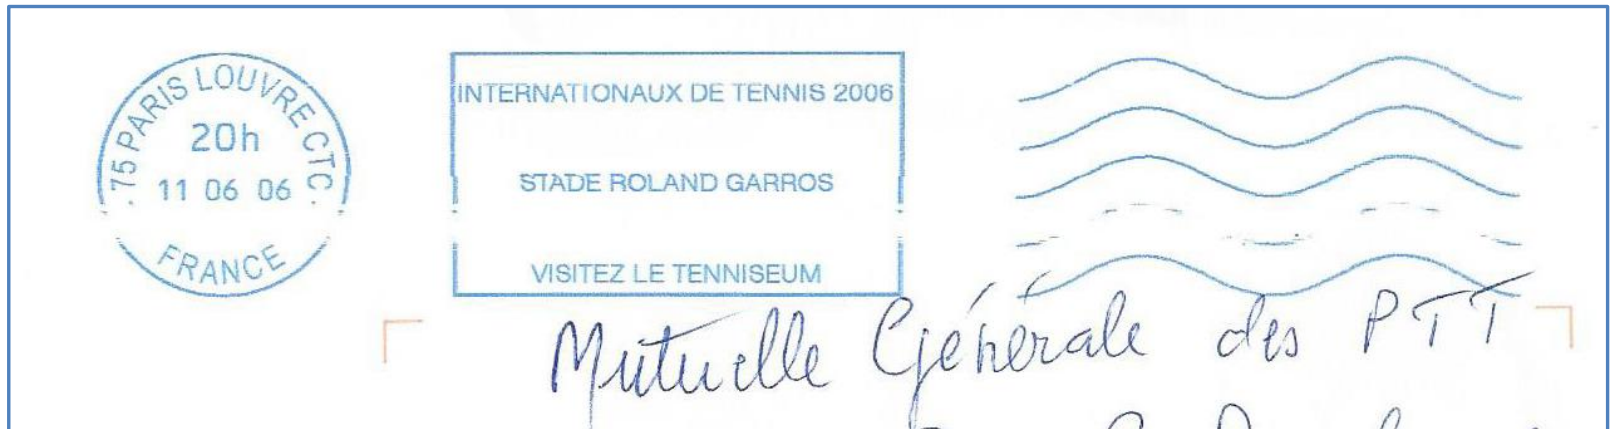 75 PARIS LOUVRE CTC
20h
11 06 06
FRANCE
INTERNATIONAUX DE TENNIS 2006
STADE ROLAND GARROS
VISITEZ LE TENNISEUM
Mutuelle Générale des PTT